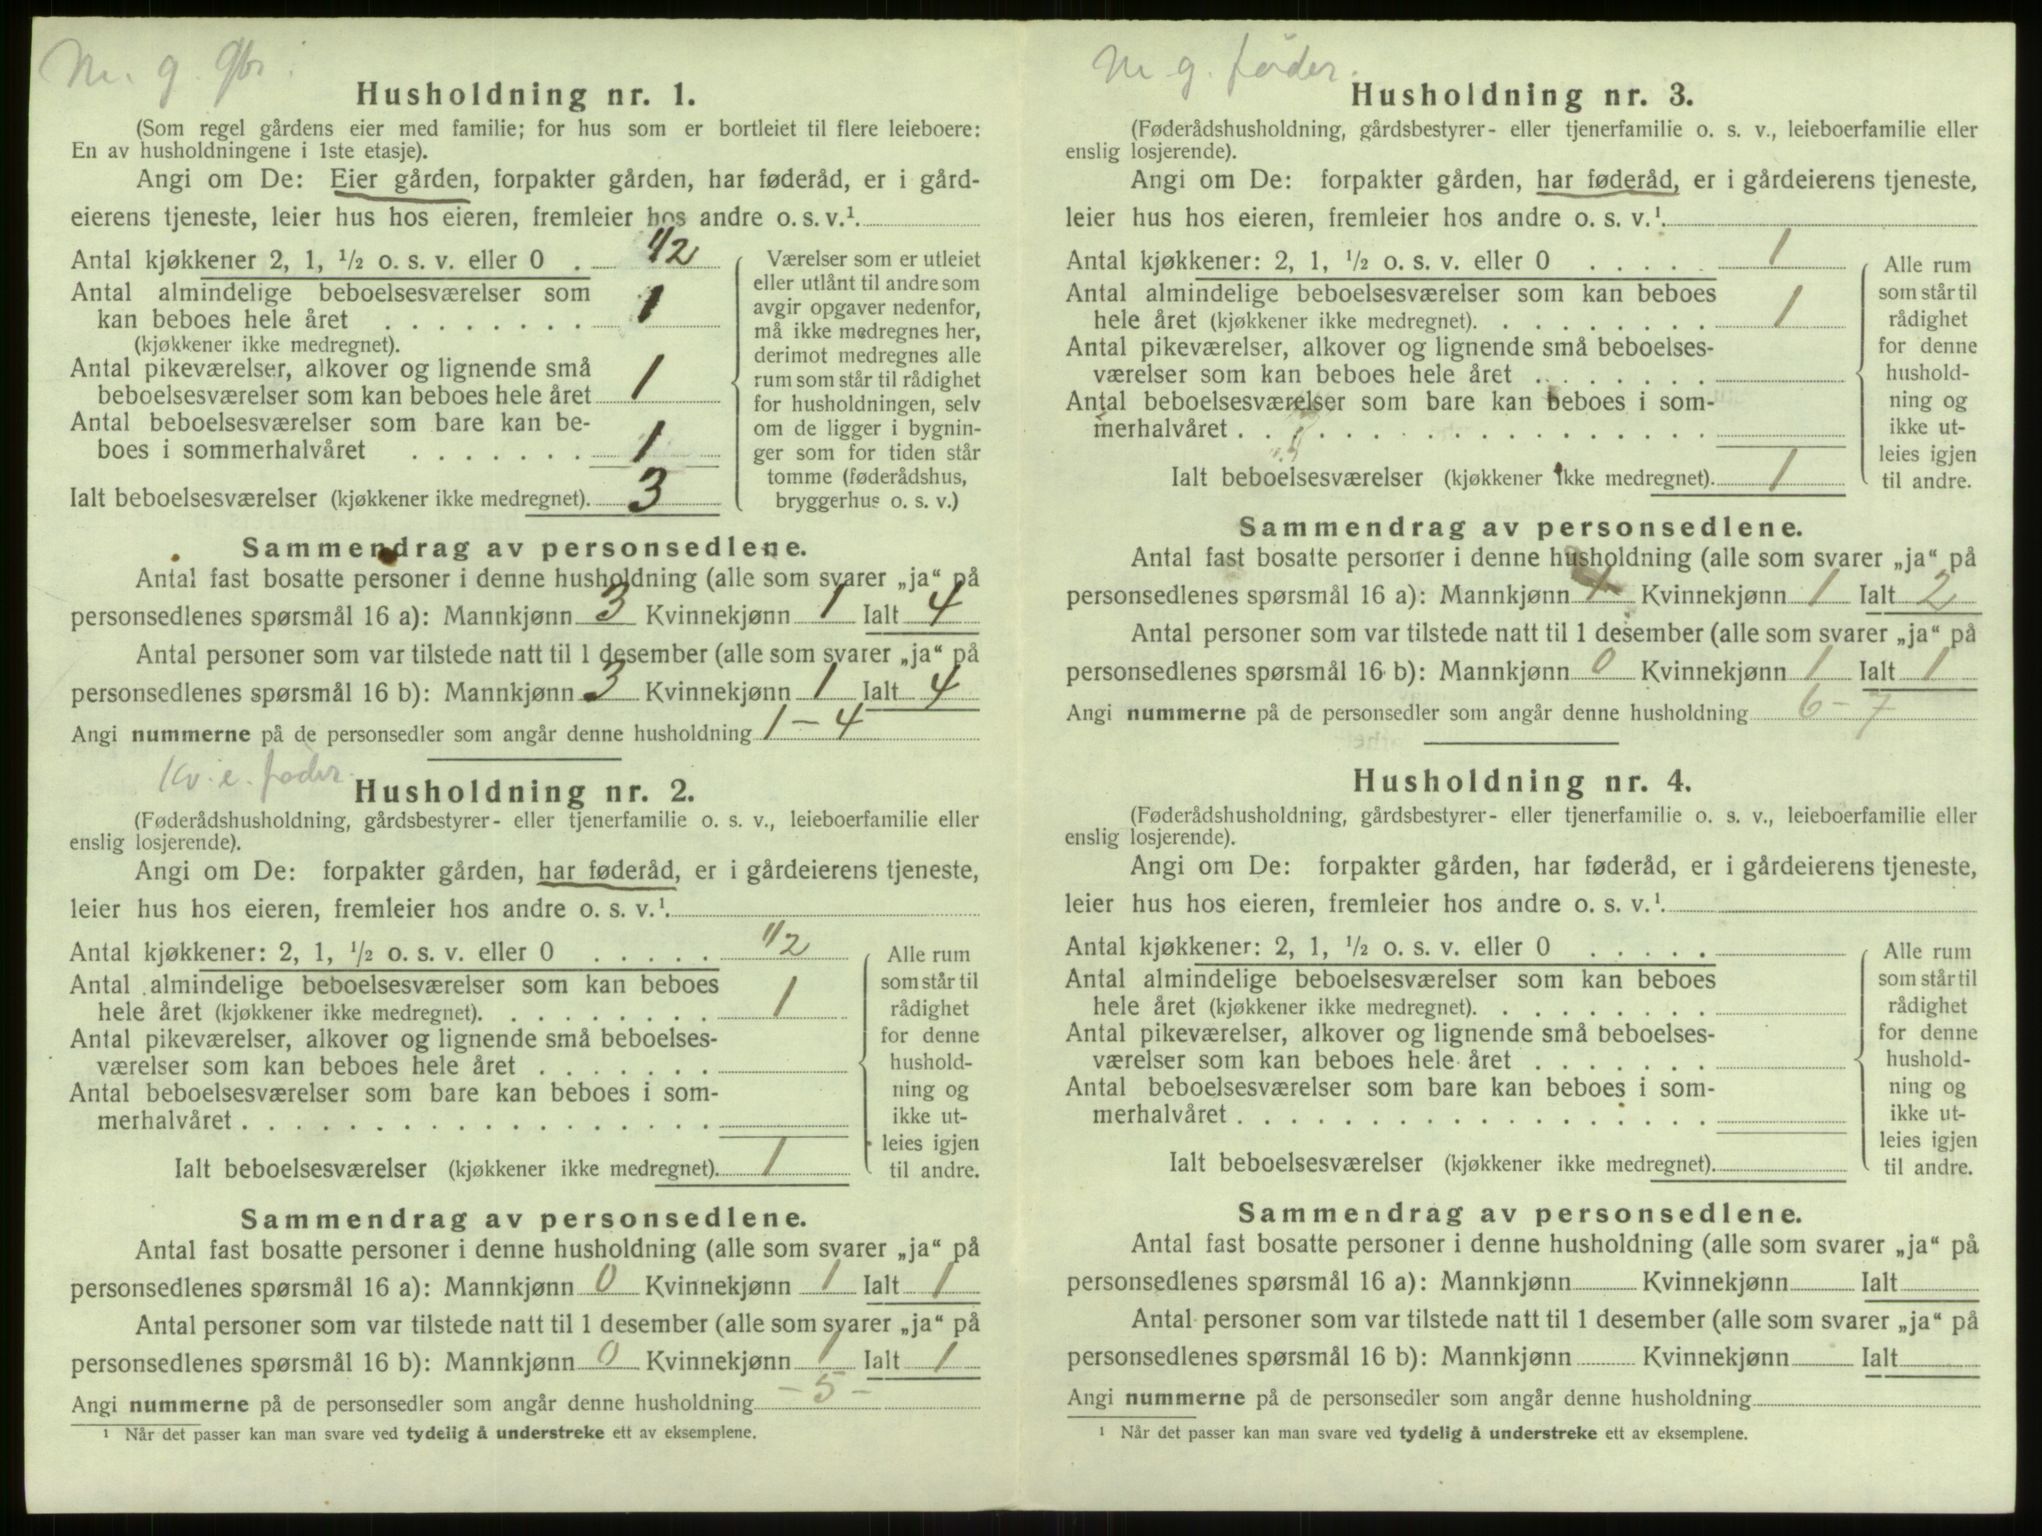 M. g. gbr.
Husholdning nr. 1.
(Som regel gårdens eier med familie; for hus som er bortleiet til flere leieboere:
En av husholdningene i 1ste etasje).
Angi om De: Eier gården, forpakter gården, har føderåd, er i gård-
eierens tjeneste, leier hus hos eieren, fremleier hos andre o. s. v.¹.
Antal kjøkkener 2, 1, ½ o. s. v. eller 0 . 1/2
Antal almindelige beboelsesværelser som
kan beboes hele året . . . . . . . . 1
(kjøkkener ikke medregnet).
Antal pikeværelser, alkover og lignende små
beboelsesværelser som kan beboes hele året 1
Antal beboelsesværelser som bare kan be-
boes i sommerhalvåret . . . . . . . 1
Ialt beboelsesværelser (kjøkkener ikke medregnet). 3
Værelser som er utleiet
eller utlånt til andre som
avgir opgaver nedenfor,
må ikke medregnes her,
derimot medregnes alle
rum som står til rådighet
for husholdningen, selv
om de ligger i bygnin-
ger som for tiden står
tomme (føderådshus,
bryggerhus o. s. v.)
Sammendrag av personsedlene.
Antal fast bosatte personer i denne husholdning (alle som svarer „ja“ på
personsedlenes spørsmål 16 a): Mannkjønn 3 Kvinnekjønn 1 Ialt 4
Antal personer som var tilstede natt til 1 desember (alle som svarer „ja“ på
personsedlenes spørsmål 16 b): Mannkjønn 3 Kvinnekjønn 1 Ialt 4
Angi nummerne på de personsedler som angår denne husholdning 1 – 4
Kv. e. føder.
Husholdning nr. 2.
(Føderådshusholdning, gårdsbestyrer- eller tjenerfamilie o. s. v., leieboerfamilie eller
enslig losjerende).
Angi om De: forpakter gården, har føderåd, er i gårdeierens tjeneste,
leier hus hos eieren, fremleier hos andre o. s. v.¹.
Antal kjøkkener: 2, 1, ½ o. s. v. eller 0 . . . . . 1/2
Antal almindelige beboelsesværelser som kan beboes
hele året (kjøkkener ikke medregnet). . . . . . . . . 1
Antal pikeværelser, alkover og lignende små beboelses-
værelser som kan beboes hele året . . . . . . .
Antal beboelsesværelser som bare kan beboes i som-
merhalvåret . . . . . . . . . . . . . . . . . .
Ialt beboelsesværelser (kjøkkener ikke medregnet). 1
Alle rum
som står til
rådighet
for denne
hushold-
ning og
ikke ut-
leies igjen
til andre.
Sammendrag av personsedlene.
Antal fast bosatte personer i denne husholdning (alle som svarer „ja“ på
personsedlenes spørsmål 16 a): Mannkjønn 0 Kvinnekjønn 1 Ialt 1
Antal personer som var tilstede natt til 1 desember (alle som svarer „ja“ på
personsedlenes spørsmål 16 b): Mannkjønn 0 Kvinnekjønn 1 Ialt 1
Angi nummerne på de personsedler som angår denne husholdning – 5 –
¹ Når det passer kan man svare ved tydelig å understreke ett av eksemplene.
M g. føder.
Husholdning nr. 3.
(Føderådshusholdning, gårdsbestyrer- eller tjenerfamilie o. s. v., leieboerfamilie eller
enslig losjerende).
Angi om De: forpakter gården, har føderåd, er i gårdeierens tjeneste,
leier hus hos eieren, fremleier hos andre o. s. v.¹.
Antal kjøkkener: 2, 1, ½ o. s. v. eller 0 . . . . . 1
Antal almindelige beboelsesværelser som kan beboes
hele året (kjøkkener ikke medregnet). . . . . . . . . 1
Antal pikeværelser, alkover og lignende små beboelses-
værelser som kan beboes hele året . . . . . . .
Antal beboelsesværelser som bare kan beboes i som-
merhalvåret . . . . . . . . . . . . . . . . . .
Ialt beboelsesværelser (kjøkkener ikke medregnet). 1
Alle rum
som står til
rådighet
for denne
hushold-
ning og
ikke ut-
leies igjen
til andre.
Sammendrag av personsedlene.
Antal fast bosatte personer i denne husholdning (alle som svarer „ja“ på
personsedlenes spørsmål 16 a): Mannkjønn 1 Kvinnekjønn 1 Ialt 2
Antal personer som var tilstede natt til 1 desember (alle som svarer „ja“ på
personsedlenes spørsmål 16 b): Mannkjønn 0 Kvinnekjønn 1 Ialt 1
Angi nummerne på de personsedler som angår denne husholdning 6 – 7
Husholdning nr. 4.
(Føderådshusholdning, gårdsbestyrer- eller tjenerfamilie o. s. v., leieboerfamilie eller
enslig losjerende).
Angi om De: forpakter gården, har føderåd, er i gårdeierens tjeneste,
leier hus hos eieren, fremleier hos andre o. s. v.¹.
Antal kjøkkener: 2, 1, ½ o. s. v. eller 0 . . . . .
Antal almindelige beboelsesværelser som kan beboes
hele året (kjøkkener ikke medregnet). . . . . . . . .
Antal pikeværelser, alkover og lignende små beboelses-
værelser som kan beboes hele året . . . . . . .
Antal beboelsesværelser som bare kan beboes i som-
merhalvåret . . . . . . . . . . . . . . . . . .
Ialt beboelsesværelser (kjøkkener ikke medregnet).
Alle rum
som står til
rådighet
for denne
hushold-
ning og
ikke ut-
leies igjen
til andre.
Sammendrag av personsedlene.
Antal fast bosatte personer i denne husholdning (alle som svarer „ja“ på
personsedlenes spørsmål 16 a): Mannkjønn Kvinnekjønn Ialt
Antal personer som var tilstede natt til 1 desember (alle som svarer „ja“ på
personsedlenes spørsmål 16 b): Mannkjønn Kvinnekjønn Ialt
Angi nummerne på de personsedler som angår denne husholdning
¹ Når det passer kan man svare ved tydelig å understreke ett av eksemplene.